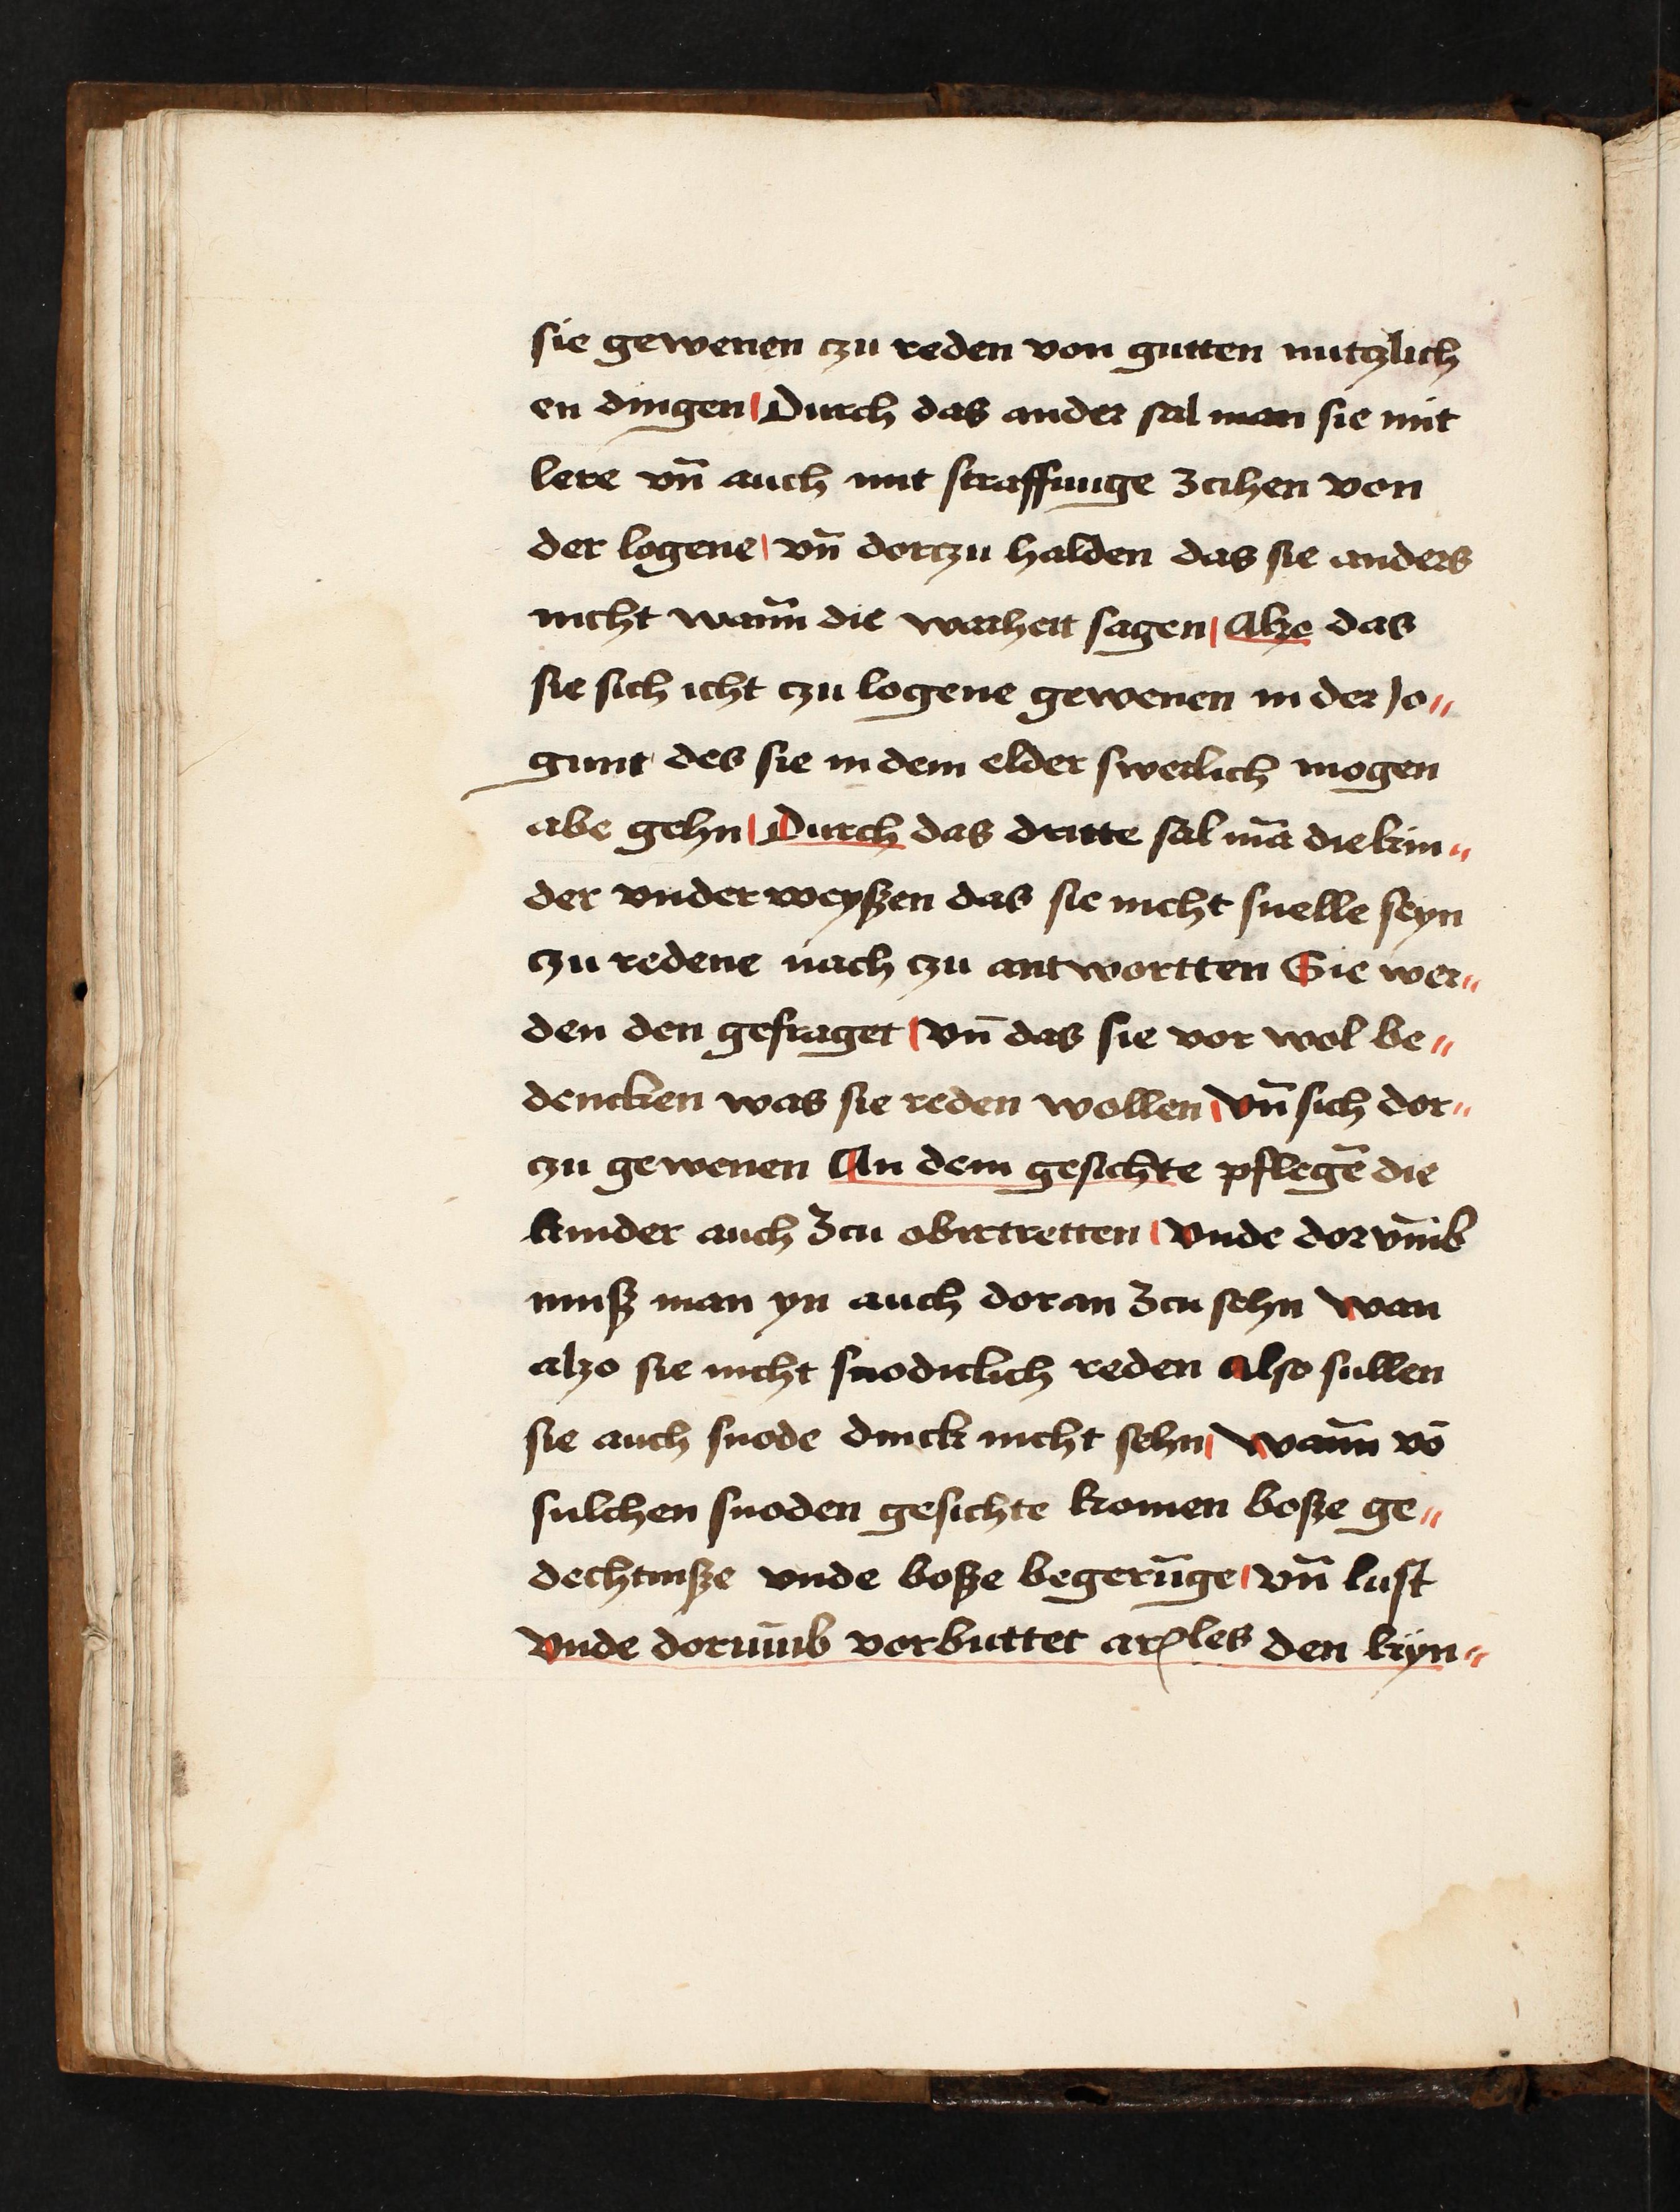 sie gewenen czu reden von gutten nutczlich
en dingen | Durch das ander sal man sie mit
lere vn̄ auch mit straffunge zcihen von
der logene | vn̄ dorczu halden das sie anders
nicht wan̄n die warheit sagen | Alzo das
sie sich icht czu logene gewenen in der Jo〃
gunt des sie in dem elder swerlich mogen
abe gehn | Durch das dritte sal mā die kin〃
der vnder weyßen das sie nicht snelle seyn
czu redene nach czu antwortten Sie wer〃
den den gefraget | vn̄ das sie vor wol be〃
dencken was sie reden wollen | vn̄ sich dor〃
czu gewenen An dem gesichte pflegē die
kinder auch Zcu obirtretten | vnde dor vm̄b
muß man yn auch doran Zcu sehn wan
alzo sie nicht snodiclich reden also sullen
sie auch snode dinck nicht sehn | wan̄n vō
sulchen snoden gesichte komen boße ge〃
dechtniße vnde boße begerūge | vn̄ lust
vnde dorum̄b vorbuttet arꝑles den kÿn〃